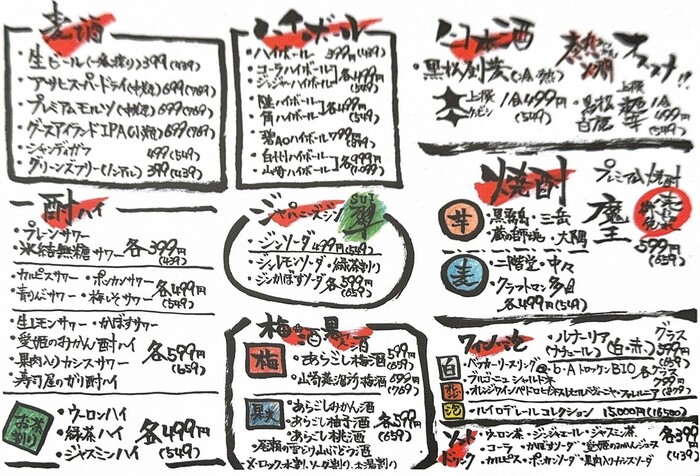 麦酒
・生ビール(一番搾り)399円(439)
・アサヒスーパードライ(中瓶)699円(769)
・プレミアムモルツ(中瓶)699円(769)
・グースアイランドIPA(小瓶)699円(769)
・シャンディガフ 499円(549)
・グリーンズフリー(ノンアル) 399円(439)
ハイボール
・ハイボール 399円(439)
・コーラハイボール
・ジンジャーハイボール 各499円(549)
・陸ハイボール
・角ハイボール 各499円(549)
・碧AOハイボール 799円(879)
・白州ハイボール
・山崎ハイボール 各999円(1,099)
日本酒
・黒松剣菱(冷・熱)
上撰 1合499円(549)
オススメ!!
上撰
・黒松
白鹿
1合499円(549)
酎ハイ
・プレーンサワー
・氷結無糖サワー 各399円(439)
・カルピスサワー ・ポンカンサワー
・青りんごサワー ・梅しそサワー 各499円(549)
・生レモンサワー ・かぼすサワー
・愛媛のおかん酎ハイ
・果肉入りカシスサワー
・寿司屋のガリ酎ハイ 各599円(659)
お茶割り
・ウーロンハイ
・緑茶ハイ
・ジャスミンハイ 各499円(549)
ジャパニーズジン
SUI
翠
・ジンソーダ 499円(549)
・ジンレモンソーダ ・緑茶割り
・ジンかぼすソーダ 各599円(659)
梅酒 果実酒
梅
・あらごし梅酒 599円(659)
・山崎蒸溜所梅酒 699円(769)
果実
・あらごしみかん酒
・あらごし柚子酒
・あらごし桃酒
・尾瀬の雪どけ山ぶどう酒 各599円(659)
※ロック・水割り・ソーダ割り・お湯割り
焼酎
芋
・黒霧島 ・三岳
・蔵の師魂 ・大隅
麦
・二階堂 ・中々
・クラフトマン多田
各499円(549)
プレミアム焼酎
魔王
599円(659)
ワイン・泡
・ルナーリア(ナチュール)(白・赤) グラス599円(659)
白
・バッカーリースリング ・b・AトロッケンBIO 各グラス
・ブルゴーニュ シャルドネ 799円(879)
泡
・ルイロデレールコレクション 15,000円(16500)
ソフトドリンク
・ウーロン茶 ・ジンジャエール ・ジャスミン茶
・コーラ ・かぼすソーダ ・愛媛のみかんジュース
・カルピス ・ポンカンソーダ ・果肉入りカシスソーダ
各399円(439)